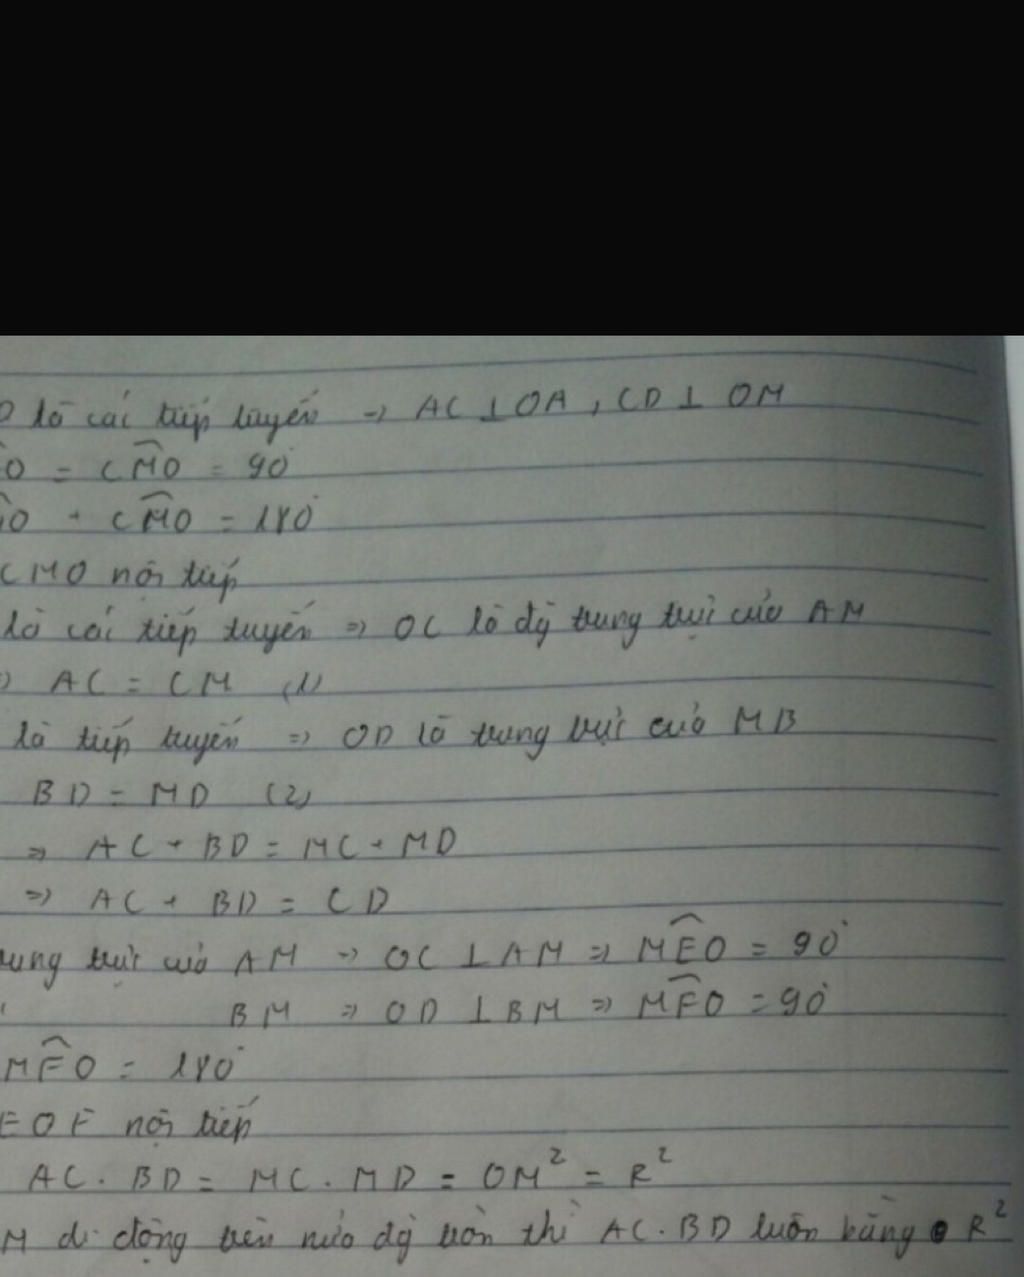 D là các tiếp tuyến => AC ⊥ OA, CD ⊥ OM
O = CMO = 90°
O + CMO = 180°
CMO nội tiếp
là các tiếp tuyến => OC là đg trung trực của AM
=> AC = CM (1)
là tiếp tuyến => OD là trung trực của MB
BD = MD (2)
=> AC + BD = MC + MD
=> AC + BD = CD
trung trực của AM => OC ⊥ AM => MEO = 90°
BM => OD ⊥ BM => MFO = 90°
MFO = 180°
EOF nội tiếp
AC . BD = MC . MD = OM² = R²
M di động trên nửa đg tròn thì AC.BD luôn bằng R²